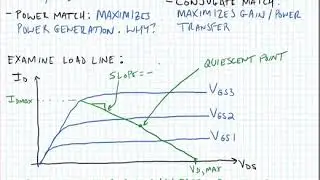 - POWER MATCH: MAXIMIZES
POWER GENERATION. WHY?
- CONJUGATE MATCH:
MAXIMIZES GAIN/POWER
TRANSFER
EXAMINE LOAD LINE:
QUIESCENT POINT
ID
SLOPE=-
IDMAX
VGS3
VGS2
VGS1
VD,MAX
VDS